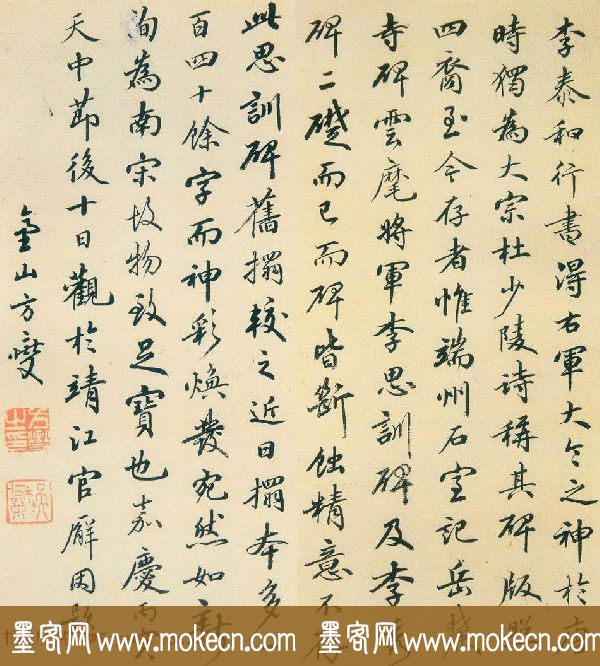 李泰和行書得右軍大令之神於唐
時獨為大宗杜少陵詩稱其碑版照
四裔至今存者惟端州石室記岳麓
寺碑雲麾將軍李思訓碑及李秀
碑二礎而已而碑皆斷蝕精意不存
此思訓碑舊搨較之近日搨本多
百四十餘字而神彩煥發宛然如新
洵為南宋故物致足寶也嘉慶丙寅
天中節後十日觀於靖江官廨因題
山方燮
墨客网 www.mokecn.com 墨客网 www.mokecn.com